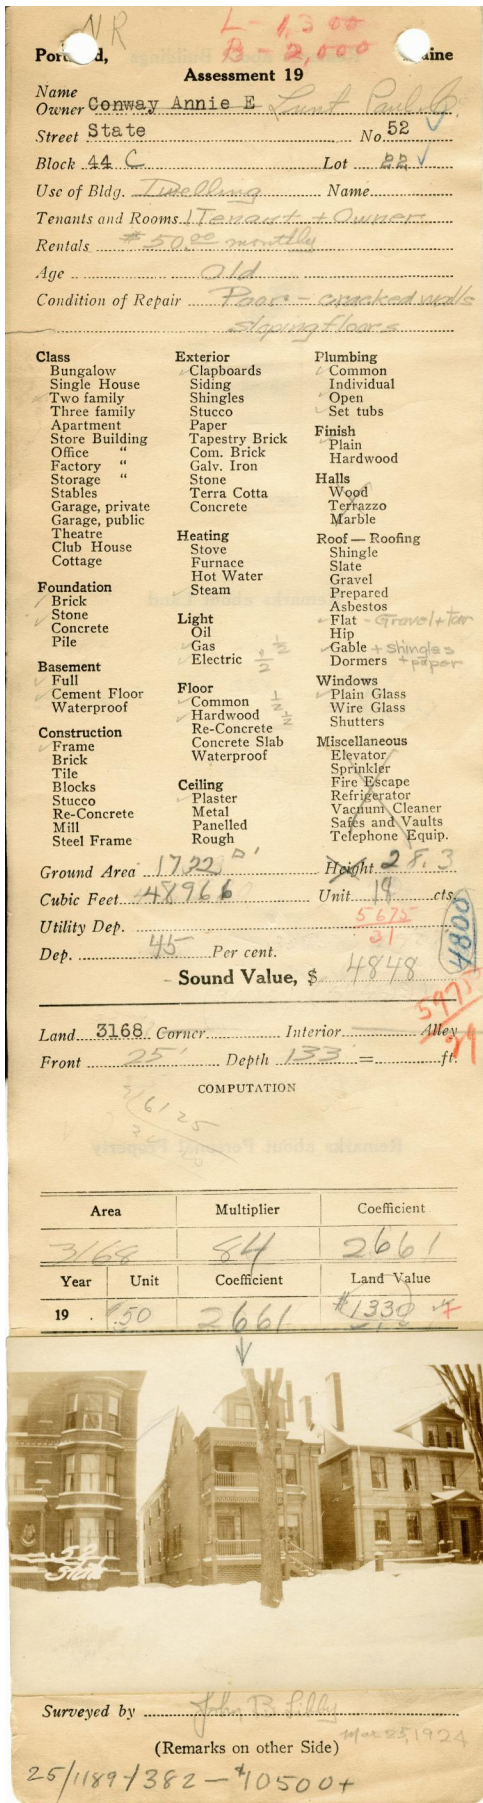 NR
L-1,300
B-2,000
Assessment 19
Name
Owner Conway Annie E Lunt Paul G.
Street State No. 52
Block 44 C Lot 22
Use of Bldg. Dwelling Name
Tenants and Rooms 1 Tenant + Owner
Rentals $50.00 monthly
Age old
Condition of Repair Poor - cracked walls
sloping floors
Class
Bungalow
Single House
Two family
Three family
Apartment
Store Building
Office "
Factory "
Storage "
Stables
Garage, private
Garage, public
Theatre
Club House
Cottage
Foundation
Brick
Stone
Concrete
Pile
Basement
Full
Cement Floor
Waterproof
Construction
Frame
Brick
Tile
Blocks
Stucco
Re-Concrete
Mill
Steel Frame
Exterior
Clapboards
Siding
Shingles
Stucco
Paper
Tapestry Brick
Com. Brick
Galv. Iron
Stone
Terra Cotta
Concrete
Heating
Stove
Furnace
Hot Water
Steam
Light
Oil
Gas 1/2
Electric 1/2
Floor
Common 1/2
Hardwood 1/2
Re-Concrete
Concrete Slab
Waterproof
Ceiling
Plaster
Metal
Panelled
Rough
Plumbing
Common
Individual
Open
Set tubs
Finish
Plain
Hardwood
Halls
Wood
Terrazzo
Marble
Roof — Roofing
Shingle
Slate
Gravel
Prepared
Asbestos
Flat - Gravel + tar
Hip
Gable + shingles
Dormers + paper
Windows
Plain Glass
Wire Glass
Shutters
Miscellaneous
Elevator
Sprinkler
Fire Escape
Refrigerator
Vacuum Cleaner
Safes and Vaults
Telephone Equip.
Ground Area 1722 □' Height 28.3
Cubic Feet 48966 Unit 18 cts.
Utility Dep. 5675
31
4800
Dep. 45 Per cent.
Sound Value, $ 4848
5975
Land 3168 Corner Interior Alley
Front 25 Depth 133 = ft.
COMPUTATION
Area Multiplier Coefficient
3168 84 2661
Year Unit Coefficient Land Value
19 . .50 2661 $1330
52
State
Surveyed by John B Libby
Mar 25, 1924
(Remarks on other Side)
25/1189-/382-$10500+